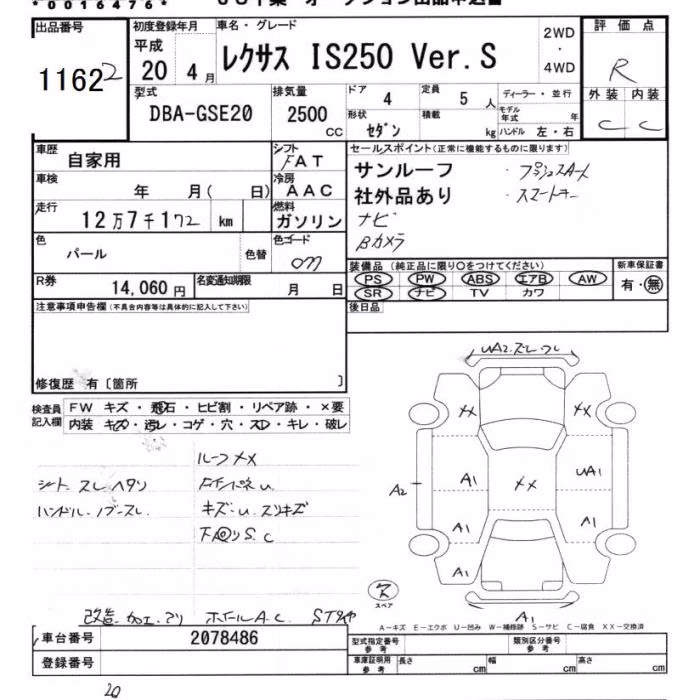 *0016476*
出品番号
1162 2
初度登録年月
平成
20 4月
車名・グレード
レクサス IS250 Ver.S
2WD
・
4WD
評価点
R
型式
DBA-GSE20
排気量
2500
CC
ドア
4
定員
5 人
形状
セダン
積載
kg
ディーラー・並行
モデル年式 年
ハンドル 左・右
外装 内装
C C
車歴
自家用
シフト
FAT
車検
年 月( 日)
冷房
AAC
走行
12万7千172 km
燃料
ガソリン
色
パール
色替
色コード
077
セールスポイント(正常に機能するものに限ります)
サンルーフ ・プッシュスタート
社外品あり ・スマートキー
ナビ
Bカメラ
R券
14,060 円
名変通知期限
月 日
装備品(純正品に限り○をつけてください)
PS PW ABS エアB AW
SR ナビ TV カワ
新車保証書
有・無
後日品
注意事項申告欄(不具合内容等は具体的に記入して下さい)
修復歴 有〔箇所 〕
検査員
記入欄
FW キズ・飛石・ヒビ割・リペア跡・×要
内装 キズ・汚レ・コゲ・穴・スレ・キレ・破レ
ルーフ XX
シート スレ ヘタリ
ハンドル・ノブ・スレ
キズ・U・スリキズ
下回り S.C
改造・加工・アリ ホイールA.C.
UA2.スレ・ワレ
XX XX
A2 A1 XX UA1
A1 A1
A1
A1
スペア
A-キズ E-エクボ U-凹み W-補修跡 S-サビ C-腐食 XX-交換済
車台番号
2078486
登録番号
型式指定番号
参考
類別区分番号
参考
車庫証明用
参考
長さ cm 幅 cm 高さ cm
20